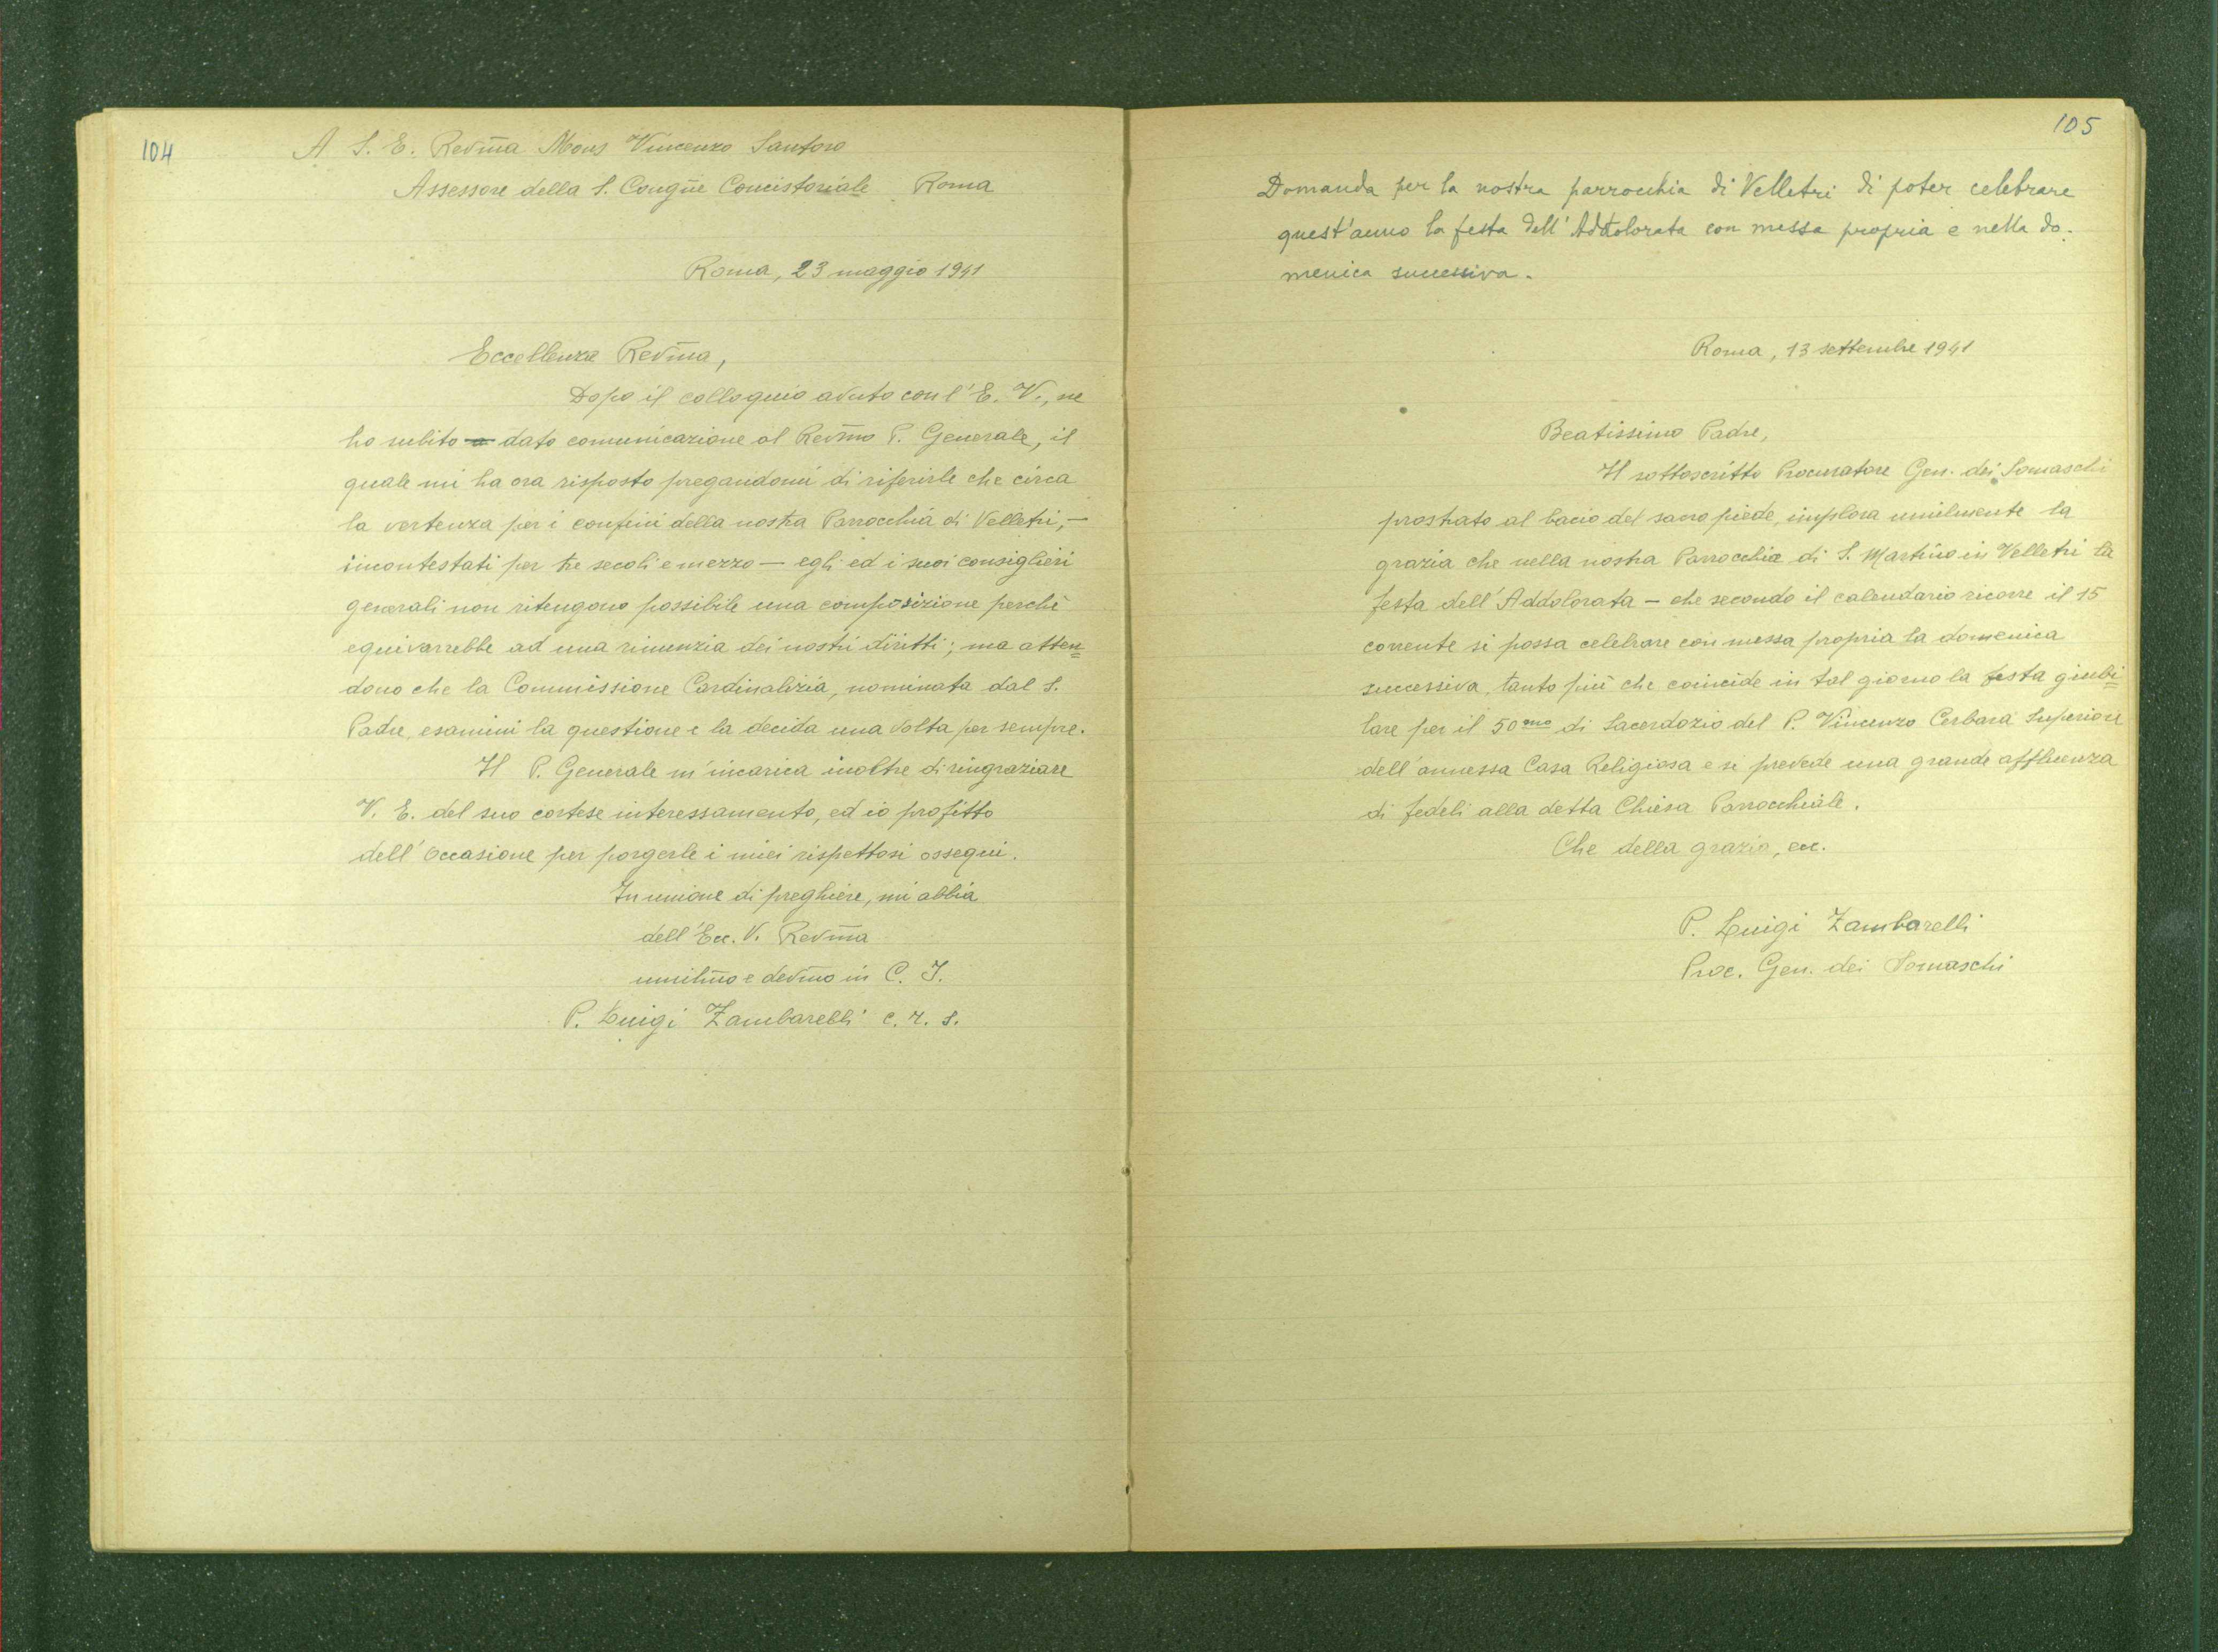 104
A S. E. Revm̃a Mons Vincenzo Santoro
Assessore della S. Congñe Concistoriale Roma
Roma, 23 maggio 1941
Eccellenza Revm̃a,
Dopo il colloquio avuto con l'E. V., ne
ho subito dato comunicazione al Revm̃o P. Generale, il
quale mi ha ora risposto pregandomi di riferirle che circa
la vertenza per i confini della nostra Parrocchia di Velletri, —
incontestati per tre secoli e mezzo — egli ed i suoi consiglieri
generali non ritengono possibile una composizione perchè
equivarrebbe ad una rinunzia dei nostri diritti; ma atten=
dono che la Commissione Cardinalizia, nominata dal S.
Padre, esamini la questione e la decida una volta per sempre.
Il P. Generale m'incarica inoltre di ringraziare
V. E. del suo cortese interessamento, ed io profitto
dell'occasione per porgerle i miei rispettosi ossequi.
In unione di preghiere, mi abbia
dell'Ecc. V. Revm̃a
umilm̃o e devm̃o in C. J.
P. Luigi Zambarelli c. r. s.
105
Domanda per la nostra parrocchia di Velletri di poter celebrare
quest'anno la festa dell'Addolorata con messa propria e nella do-
menica successiva.
Roma, 13 settembre 1941
Beatissimo Padre,
Il sottoscritto Procuratore Gen. dei Somaschi
prostrato al bacio del sacro piede, implora umilmente la
grazia che nella nostra Parrocchia di S. Martino in Velletri la
festa dell'Addolorata — che secondo il calendario ricorre il 15
corrente si possa celebrare con messa propria la domenica
successiva, tanto più che coincide in tal giorno la festa giubi=
lare per il 50mo di Sacerdozio del P. Vincenzo Cerbara Superiore
dell'annessa Casa Religiosa e si prevede una grande affluenza
di fedeli alla detta Chiesa Parrocchiale.
Che della grazia, ecc.
P. Luigi Zambarelli
Proc. Gen. dei Somaschi